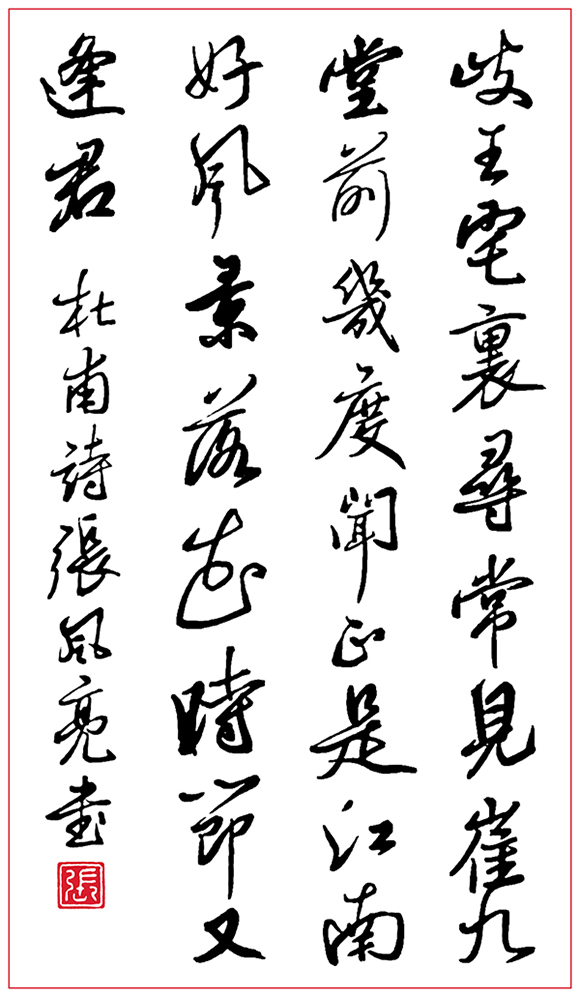 岐王宅裏尋常見崔九
堂前幾度聞正是江南
好風景落花時節又
逢君 杜甫詩張風亮書
張